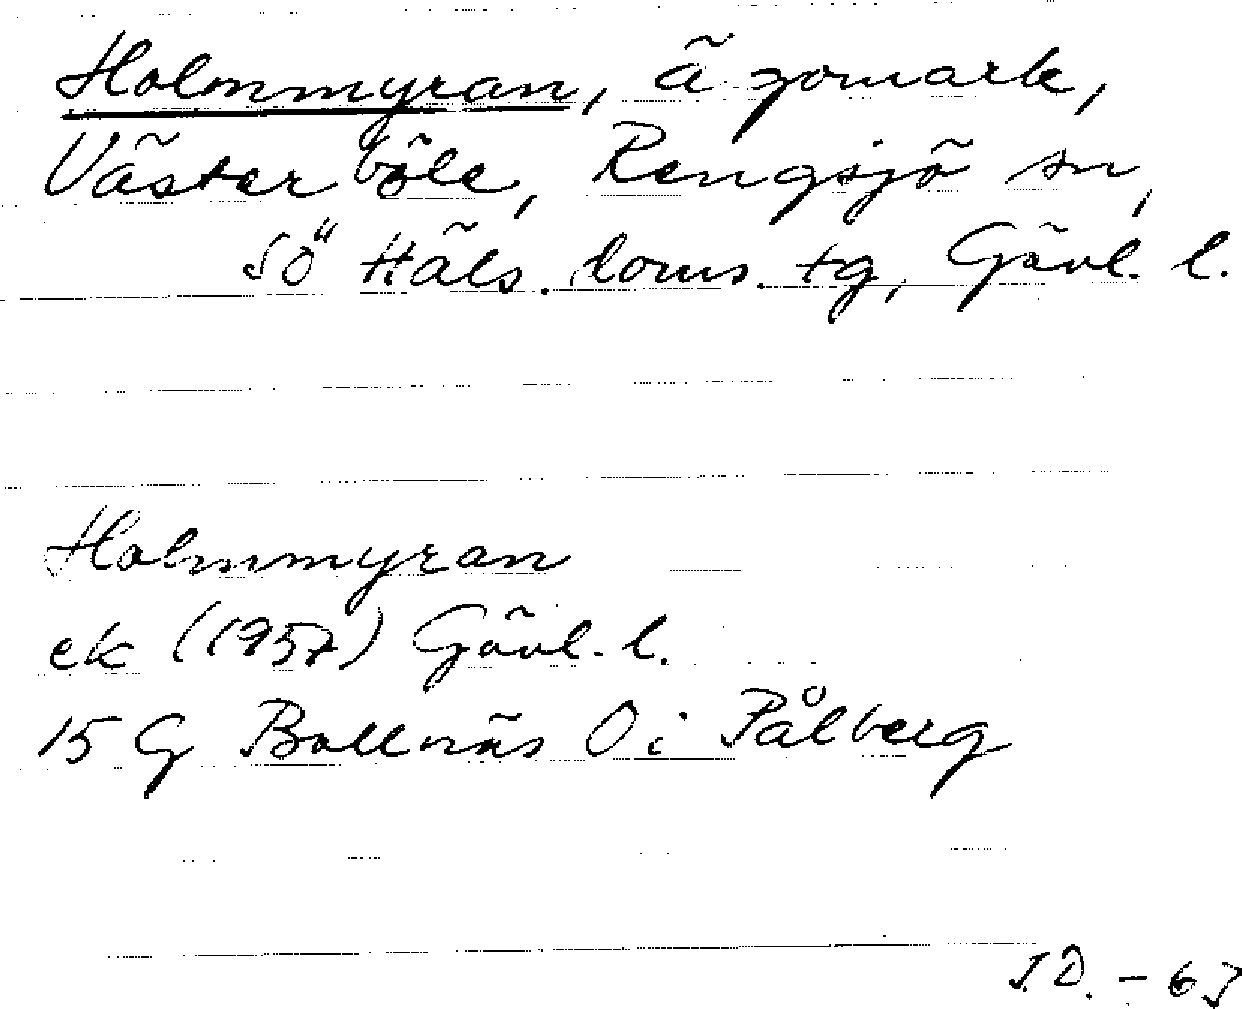 Holmmyran, ägomark,
Västerböle, Rengsjö sn,
SÖ Häls. doms. tg, Gävl. l.
Holmmyran
ek (1957) Gävl. l.
15 G Bollnäs 0 i Pålberg
J.D. - 63